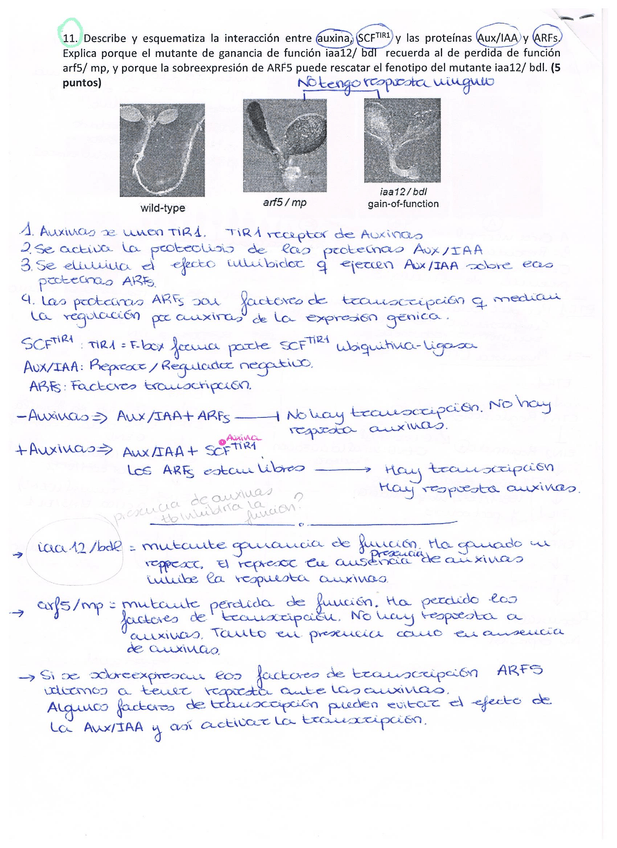 11. Describe y esquematiza la interacción entre auxina, SCFTIR1 y las proteínas Aux/IAA y ARFs.
Explica porque el mutante de ganancia de función iaa12/ bdl recuerda al de perdida de función
arf5/ mp, y porque la sobreexpresión de ARF5 puede rescatar el fenotipo del mutante iaa12/ bdl. (5
puntos)
No tengo respuesta ninguno
wild-type
arf5 / mp
iaa12 / bdl
gain-of-function
1. Auxinas se unen TIR1. TIR1 receptor de Auxinas
2. Se activa la proteolisis de las proteínas Aux/IAA
3. Se elimina el efecto inhibidor q ejercen Aux/IAA sobre las
proteínas ARFs.
4. Las proteínas ARFs son factores de transcripción q median
la regulación por auxinas de la expresión génica.
SCFTIR1 : TIR1 = F-box forma parte SCFTIR1 ubiquitina-ligasa
Aux/IAA: Represor / Regulador negativo.
ARFs: Factores transcripción.
-Auxinas ⇒ Aux/IAA + ARFs ⊣ No hay transcripción. No hay
respuesta auxinas.
Auxina
+Auxinas ⇒ Aux/IAA + SCFTIR1
Los ARFs estan libres → Hay transcripción
Hay respuesta auxinas.
presencia de auxinas
tb inhibiria la
función?
→ iaa12/bdl = mutante ganancia de función. Ha ganado un
represor. El represor en ausencia de auxinas
presencia
inhibe la respuesta auxinas.
→ arf5/mp = mutante perdida de función. Ha perdido los
factores de transcripción. No hay respuesta a
auxinas. Tanto en presencia como en ausencia
de auxinas.
→ Si se sobreexpresan los factores de transcripción ARF5
volvemos a tener respuesta ante las auxinas.
Algunos factores de transcripción pueden evitar el efecto de
la Aux/IAA y así activar la transcripción.